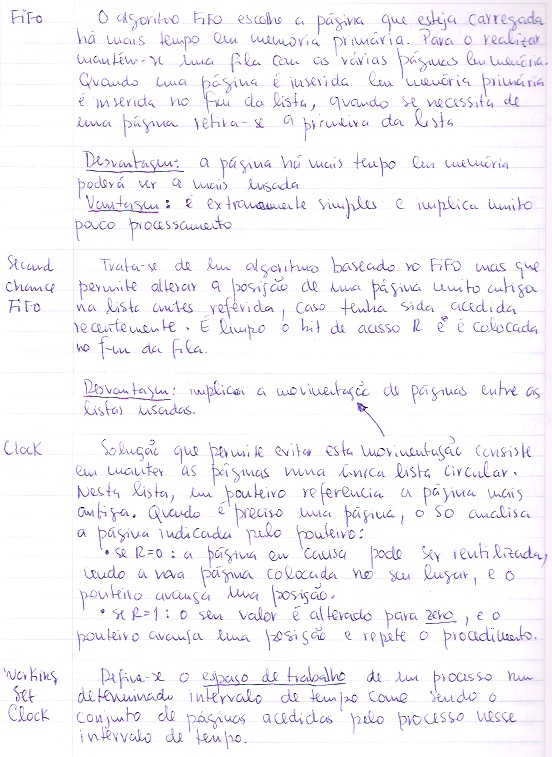 FIFO O algoritmo FIFO escolhe a página que esteja carregada
há mais tempo em memoria primária. Para o realizar
mantêm-se uma fila com as várias páginas em memória.
Quando uma página é inserida em memória primária
é inserida no fim da lista, quando se necessita de
uma página retira-se a primeira da lista
Desvantagem: a página há mais tempo em memória
poderá ser a mais usada
Vantagem: é extremamente simples e implica muito
pouco processamento
Second Trata-se de um algoritmo baseado no FIFO mas que
chance permite alterar a posição de uma página muito antiga
FIFO na lista antes referida, caso tenha sida acedida
recentemente. É limpo o bit de acesso R e é colocada
no fim da fila.
Desvantagem: implica a movimentação de páginas entre as
listas usadas.
Clock Solução que permite evitar esta movimentação consiste
em manter as páginas numa única lista circular.
Nesta lista, um ponteiro referencia a página mais
antiga. Quando é preciso uma página, o SO analisa
a página indicada pelo ponteiro:
• se R=0: a página em causa pode ser reutilizada,
sendo a nova página colocada no seu lugar, e o
ponteiro avança uma posição.
• se R=1: o seu valor é alterado para zero, e o
ponteiro avança uma posição e repete o procedimento.
Working Define-se o espaço de trabalho de um processo num
Set determinado intervalo de tempo como sendo o
Clock conjunto de páginas acedidas pelo processo nesse
intervalo de tempo.